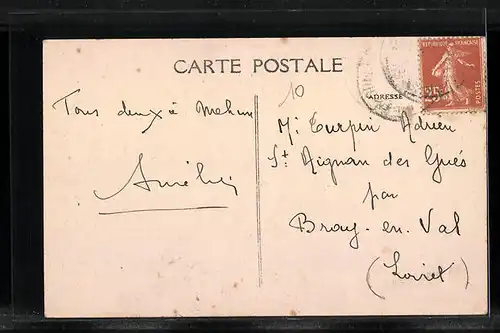 CARTE POSTALE
10
ADRESSE
REPUBLIQUE FRANÇAISE
25
POSTES
Tous deux à Mehun
Amélie
Mr Turpin Adrien
St Aignan des Gués
par
Bray-en-Val
(Loiret)